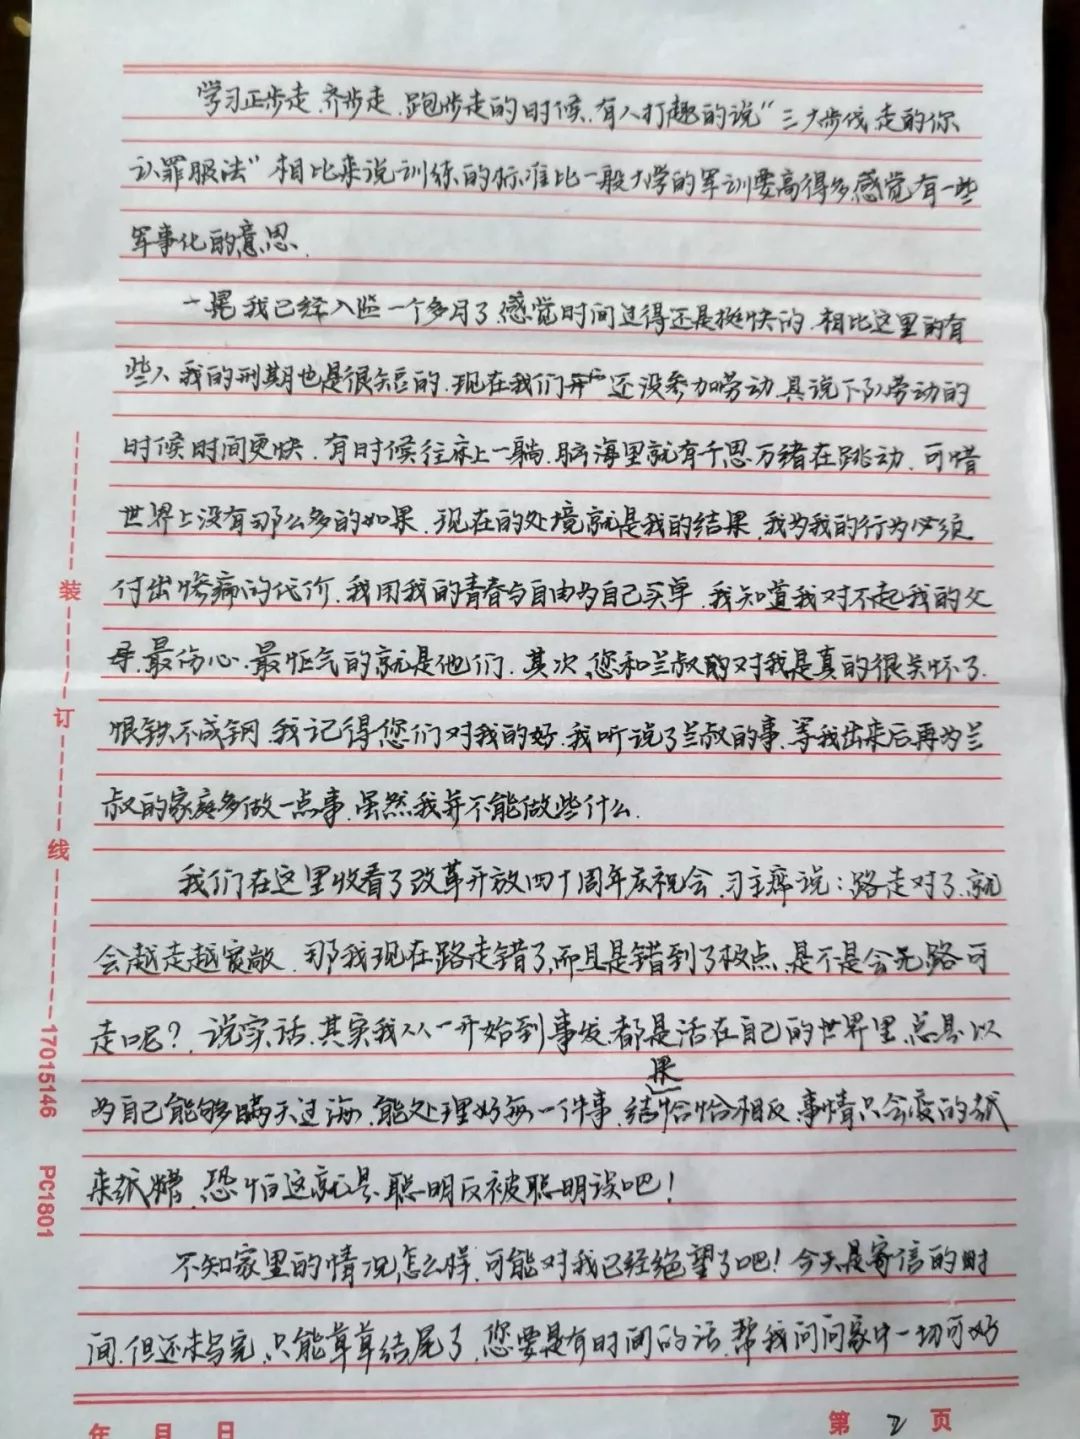 学习正步走.齐步走.跑步走的时候.有人打趣的说"三大步伐走的你
认罪服法"相比来说训练的标准比一般大学的军训要高得多.感觉有一些
军事化的意思.
一晃我已经入监一个多月了.感觉时间过得还是挺快的.相比这里的有
些人我的刑期也是很短的.现在我们 还没参加劳动.具说下队劳动的
时候时间更快.有时候往床上一躺.脑海里就有千思万绪在跳动.可惜
世界上没有那么多的如果.现在的处境就是我的结果.我为我的行为必须
付出惨痛的代价.我用我的青春与自由为自己买单.我知道我对不起我的父
母.最伤心.最怄气的就是他们.其次.您和兰叔的对我是真的很关怀了.
恨铁不成钢.我记得您们对我的好.我听说了兰叔的事.等我出来后再为兰
叔的家庭多做一点事.虽然我并不能做些什么.
我们在这里收看了改革开放四十周年庆祝会.习主席说:路走对了.就
会越走越宽敞.那我现在路走错了,而且是错到了极点.是不是会无路可
走呢?.说实话.其实我从一开始到事发.都是活在自己的世界里.总是以
为自己能够瞒天过海.能处理好每一件事.结果恰恰相反.事情只会变的越
来越糟.恐怕这就是聪明反被聪明误吧!
不知家里的情况怎么样.可能对我已经绝望了吧!今天是寄信的时
间.但还未写完.只能草草结尾了.您要是有时间的话.帮我问问家中一切可好
装
订
线
17015146 PC1801
年 月 日
第 2 页